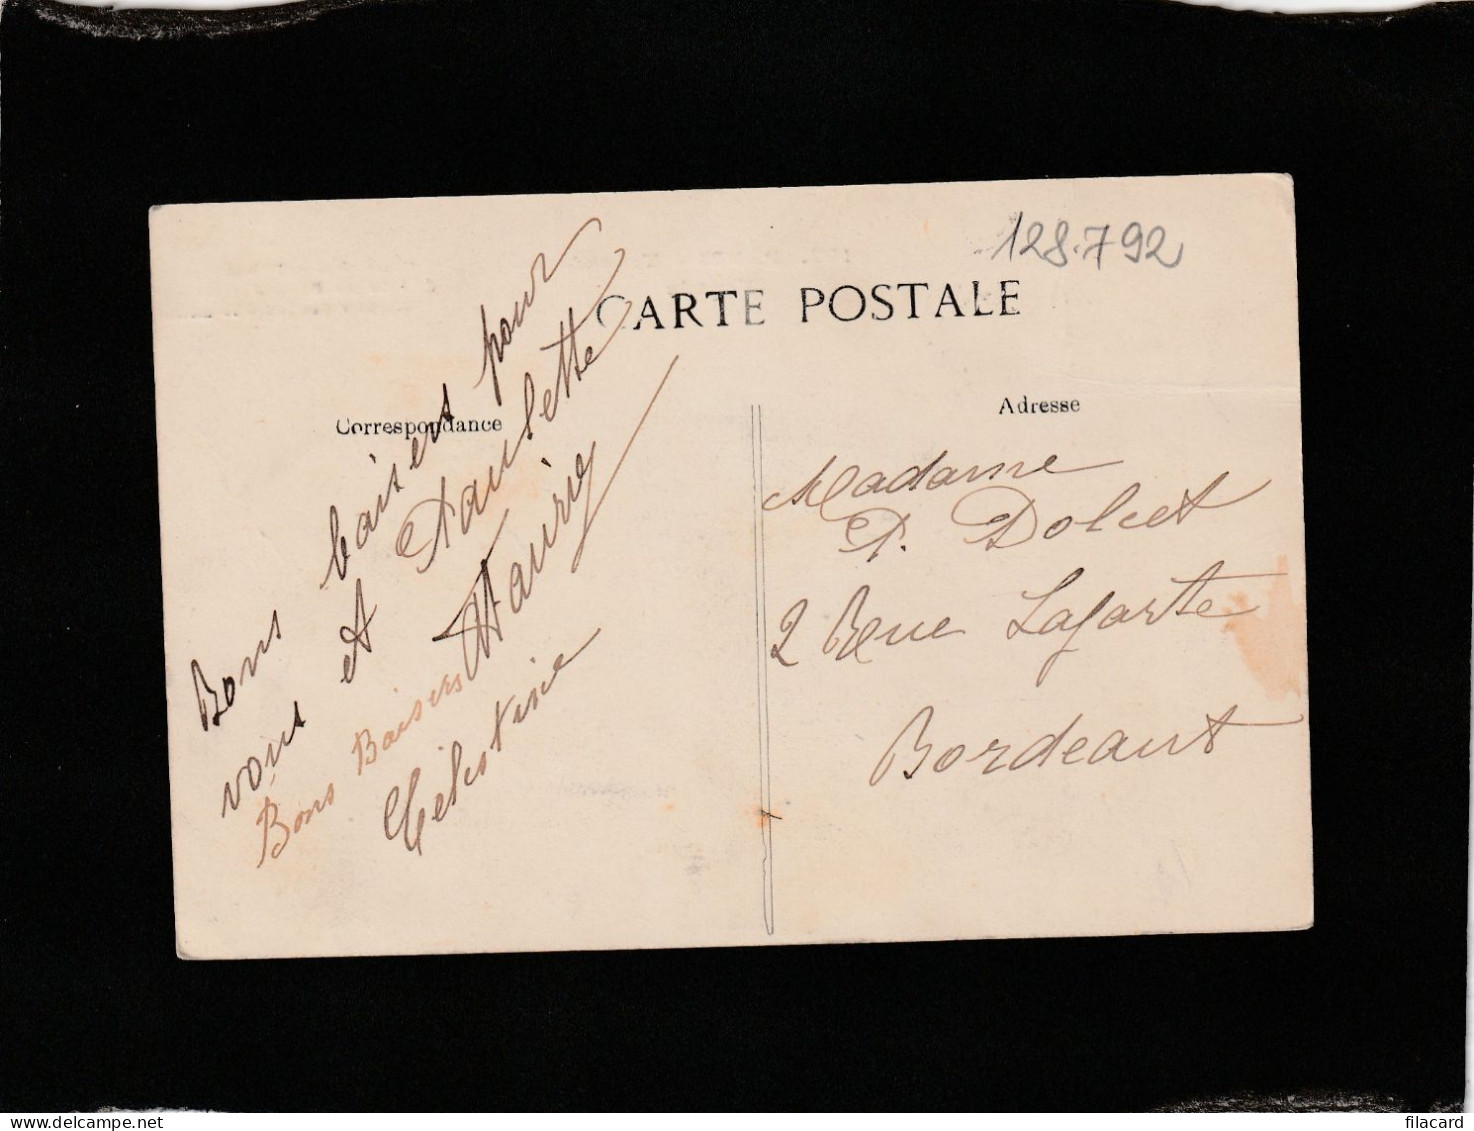 128.792
CARTE POSTALE
Correspondance
Adresse
Bons baisers pour
vous et Paulette
Bons Baisers
Célestine
Madame
P. Dolcet
2 Rue Lafarte
Bordeaux
filacard